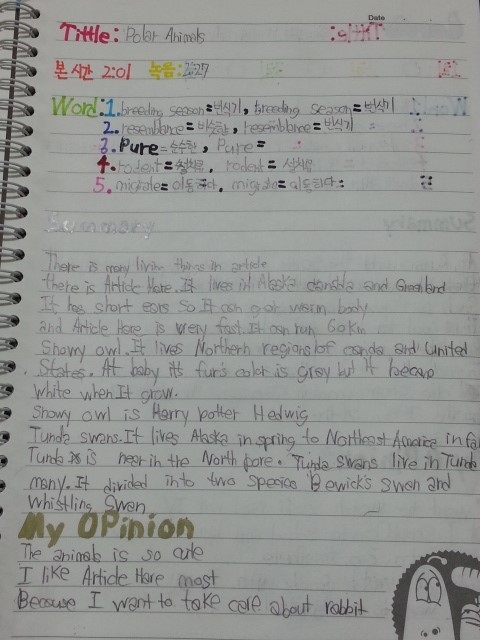 Date
Tittle: Polar Animals
본 시간 2:01 녹음: 2:27
Word: 1. breeding season=번식기, breeding season=번식기
2. resemblance=비슷함, resemblance=번식기
3. Pure=순수한, Pure=
4. rodent=설치류, rodent=설치류
5. migrate=이동하다, migrate=이동하다
Summary
There is many livin thins in article
there is Article Hare. It lives in Alaska canada and Greenland
It has short ears So It can got warm body
and Article Hare is very fast. It can run 60km
Snowy owl. It lives Northern regions of canda and United
States. At baby it's fur's color is gray but it becaus
white when It grow.
Snowy owl is Harry potter Hedwig
Tunda swans. It lives Alaska in spring to Northeast America in fa
Tunda is near in the North pore. Tunda swans live in Tunda
many. It divided into two species Bewick's swan and
whistling swan.
My OPinion
The animals is so cute
I like Article Hare most
Because I want to take care about rabbit